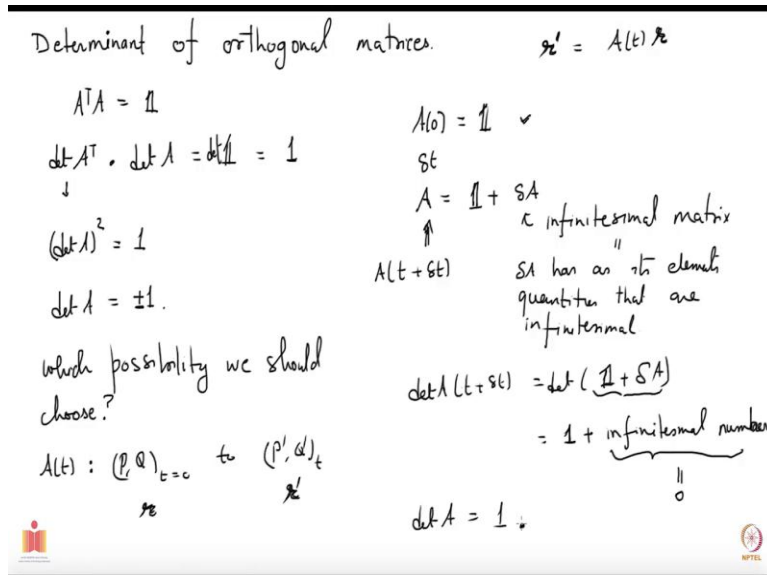 Determinant of orthogonal matrices.
AᵀA = 𝟙
det Aᵀ . det A = det 𝟙 = 1
↓
(det A)² = 1
det A = ±1.
which possibility we should
choose?
A(t) : (P, Q)ₜ₌₀ to (P', Q')ₜ
r r'
r' = A(t) r
A(0) = 𝟙 ✓
δt
A = 𝟙 + δA
⇑ ↖ infinitesimal matrix
A(t + δt) "
δA has as its elements
quantities that are
infinitesimal
det A(t+δt) = det (𝟙 + δA)
= 1 + infinitesmal number
||
0
det A = 1.
NPTEL